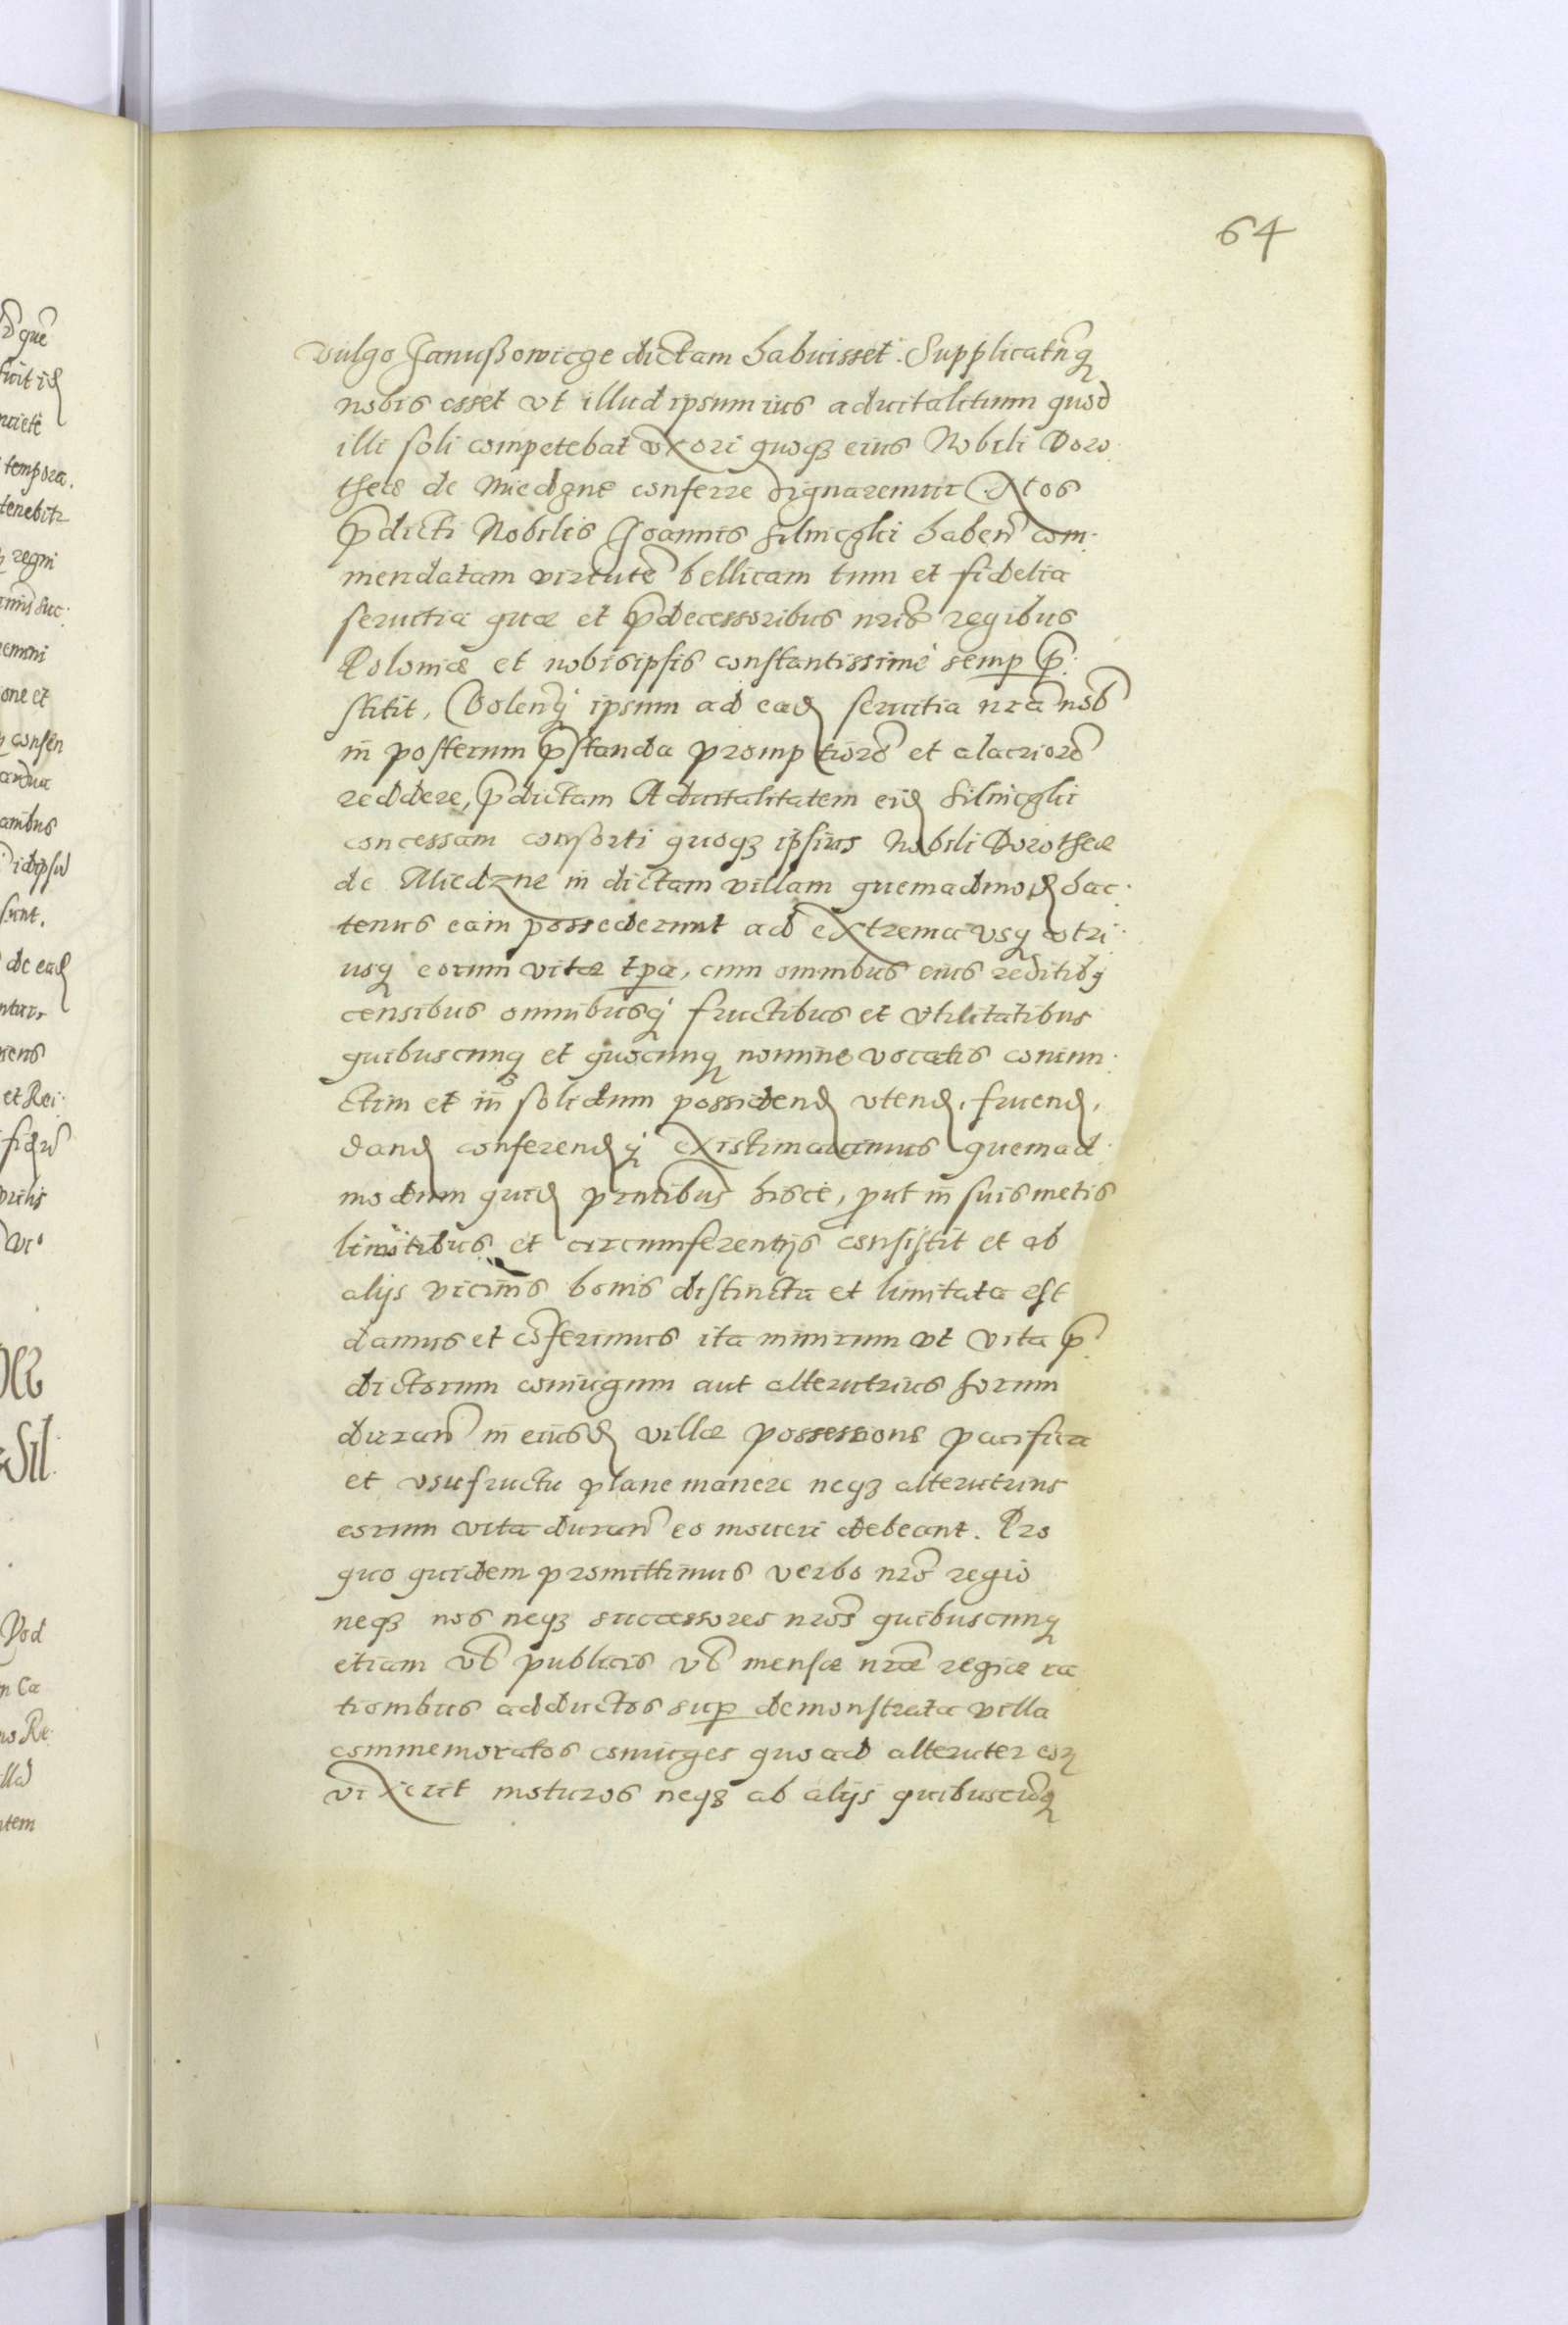 64
vulgo Janußowicze dictam habuisset. Supplicatũq
nobis esset vt illud ipsum ius aduitalitium quod
illi soli competebat vxori quoqȝ eius Nobili Doro
theæ de Miedzne conferre dignaremur Nos
p̃dicti Nobilis Joannis Silniczki habeñ com
mendatam virtutẽ bellicam tum et fidelia
seruitia quæ et p̃decessoribus nr̃is regibus
Poloniæ et nobisipsis constantissimè semp p̃
stitit, Volenq̃ ipsum ad ead seruitia nr̃a nob̃
in posterum p̃standa promptiorẽ et alacriorẽ
reddere, p̃dictam Aduitalitatem eid Silniczki
concessam consorti quoqȝ ipsius Nobili Dorotheæ
de Miedzne in dictam villam quemadmod hac
tenus eam possederunt ad extrema vsq vtri
usq eorum vitæ tpa, cum omnibus eius reditibq
censibus omnibusq fructibus et vtilitatibus
quibuscunq et quocunq nomine vocatis coniun
ctim et in solidum possidend vtend, fruend,
dand conferendq existimauimus quemad
modum quid pr̃ntibus hisce, prout in suis metis
limitibus et circumferentijs consistit et ab
alijs vicinis bonis distincta et limitata est
damus et cõferimus ita nimirum vt vita p̃
dictorum coniugum aut alterutrius horum
durañ in eiusd villæ possessione pacifica
et vsufructu plane manere neqȝ alterutrius
eorum vita durañ eo moueri debeant. Pro
quo quidem promittimus verbo nr̃o regio
neqȝ nos neqȝ successores nr̃os quibuscunq
etiam vb̃ publicis vb̃ mensæ nr̃æ regiæ ra
tionibus adductos sup demonstrata villa
commemoratos coniuges quoad alteruter eoꝝ
vixerit moturos neqȝ ab alijs quibuscũq